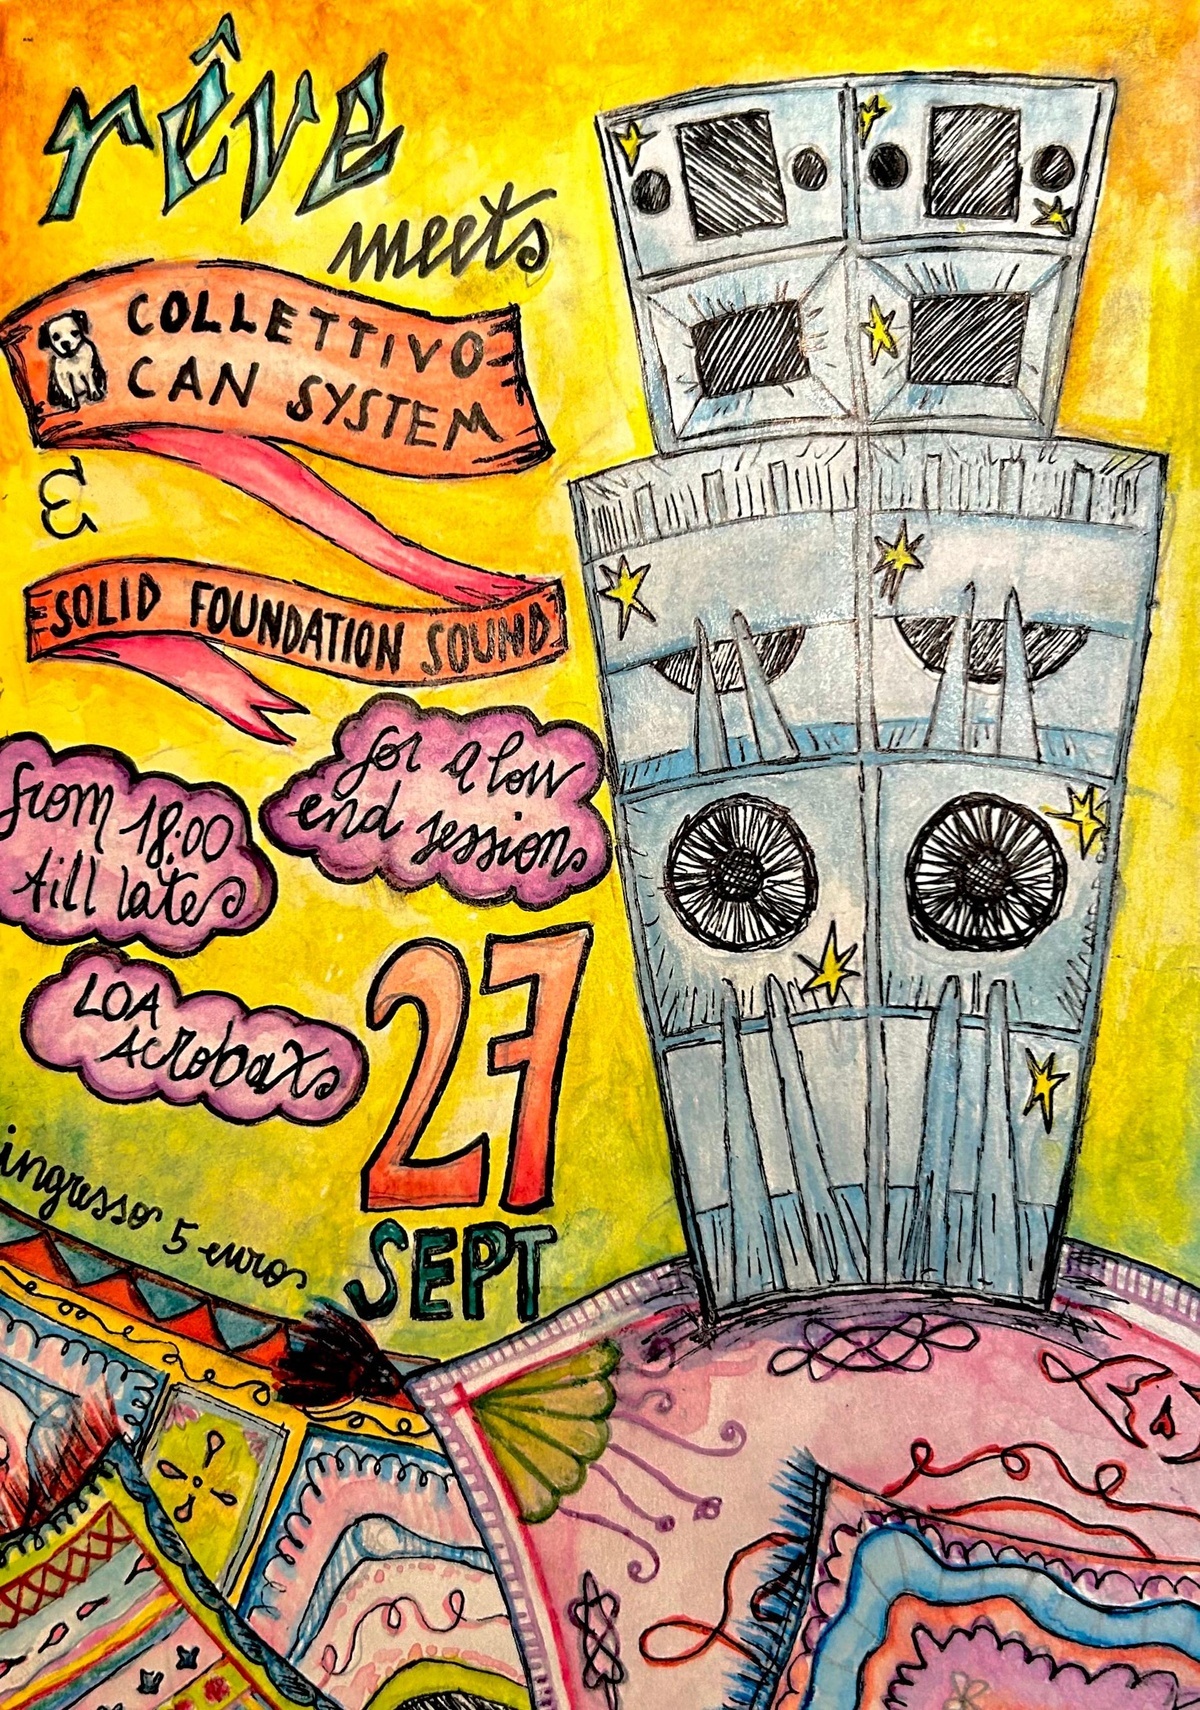 rêve
meets
COLLETTIVO
CAN SYSTEM
&
SOLID FOUNDATION SOUND
for a low
end session
from 18:00
till late
LOA
Acrobax
27
SEPT
ingresso 5 euro